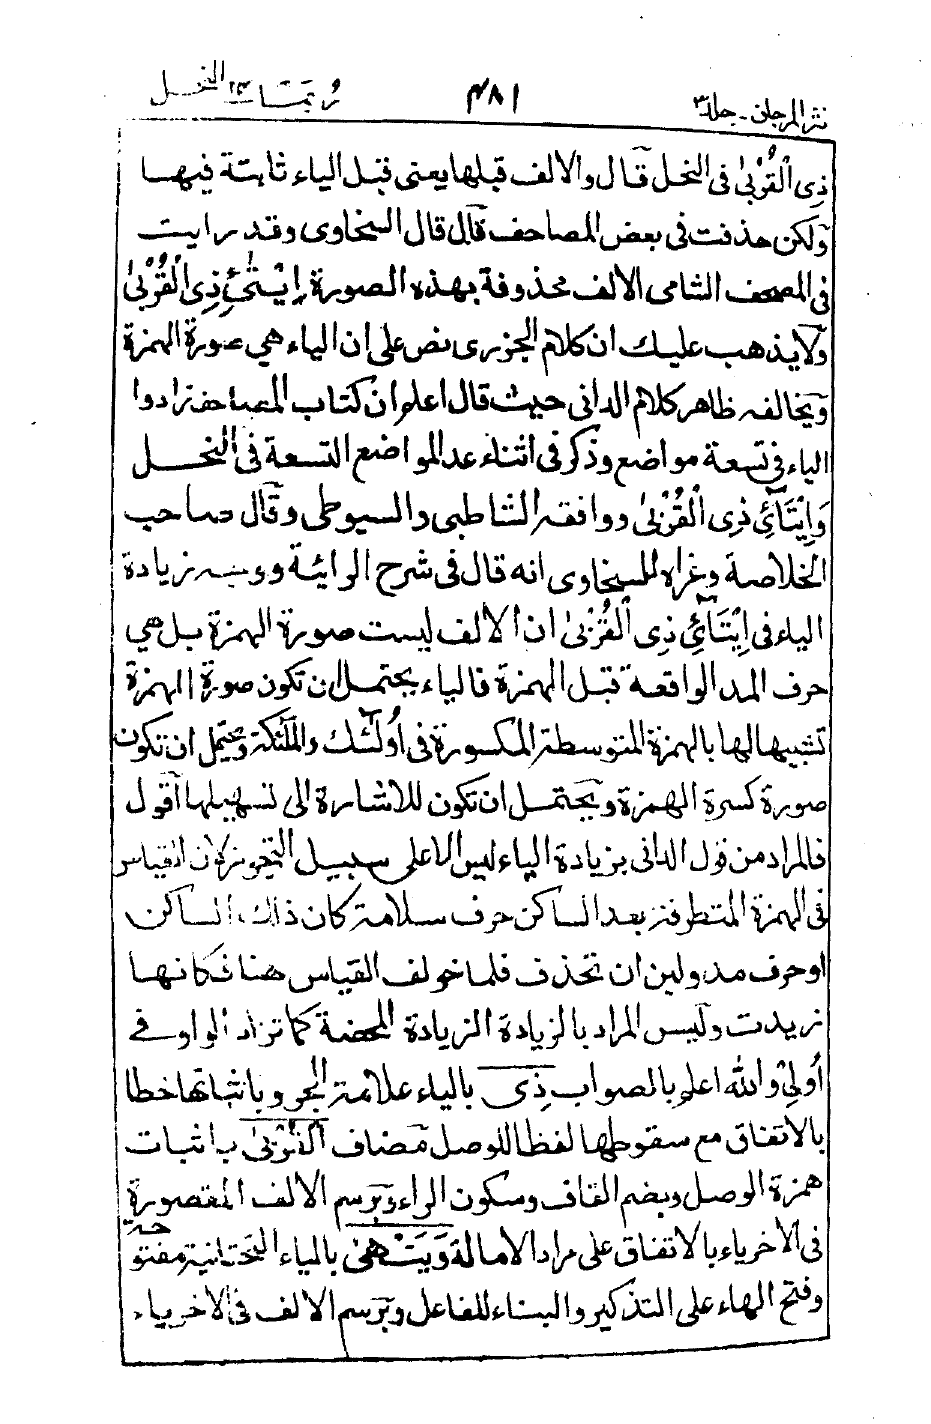 نثر المرجان - جلد ٣ ٤٨١ ربما ١٤ النحل
ذِى الْقُرْبىٰ فى النحل قال والالف قبلها يعنى قبل الياء ثابتة فيها
ولكن حذفت فى بعض المصاحف قال قال السخاوى وقد رايت
فى المصحف الشامى الالف محذوفة بهذه الصورة اِيْتٰئِ ذِى الْقُرْبىٰ
ولا يذهب عليك ان كلام الجزرى نص على ان الياء هى صورة الهمزة
ويخالفه ظاهر كلام الدانى حيث قال اعلم ان كتاب المصاحف زادوا
الياء فى تسعة مواضع وذكر فى اثناء عد المواضع التسعة فى النحل
وَاِيْتَآئِ ذِى الْقُرْبىٰ ووافقه الشاطبى والسيوطى وقال صاحب
الخلاصة وعزاه للسخاوى انه قال فى شرح الرائية ووجه زيادة
الياء فى اِيْتَآئِ ذِى الْقُرْبىٰ ان الالف ليست صورة الهمزة بل هى
حرف المد الواقعة قبل الهمزة فالياء يحتمل ان تكون صورة الهمزة
تشبيها لها بالهمزة المتوسطة المكسورة فى اُولٰٓئك والملٰٓئكة ويحتمل ان تكون
صورة كسرة الهمزة ويحتمل ان تكون للاشارة الى تسهيلها اقول
فالمراد من قول الدانى بزيادة الياء ليس الا على سبيل التجوز لان القياس
فى الهمزة المتطرفة بعد الساكن حرف سلامة كان ذلك الساكن
او حرف مد ولين ان تحذف فلما خولف القياس هنا فكانها
زيدت وليس المراد بالزيادة الزيادة المحضة كما تزاد الواو فى
اُولِىْ والله اعلم بالصواب ذِى بالياء علامة الجر وباثباتها خطا
بالاتفاق مع سقوطها لفظا للوصل مضاف الْقُرْبىٰ باثبات
همزة الوصل وبضم القاف وسكون الراء وبرسم الالف المقصورة
فى الاخر ياء بالاتفاق على مراد الامالة وَيَنْهىٰ بالياء التحتانية مفتوحة
وفتح الهاء على التذكير والبناء للفاعل وبرسم الالف فى الاخر ياء